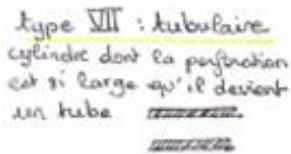 type VII : tubulaire
cylindre dont la perforation
est si large qu'il devient
un tube